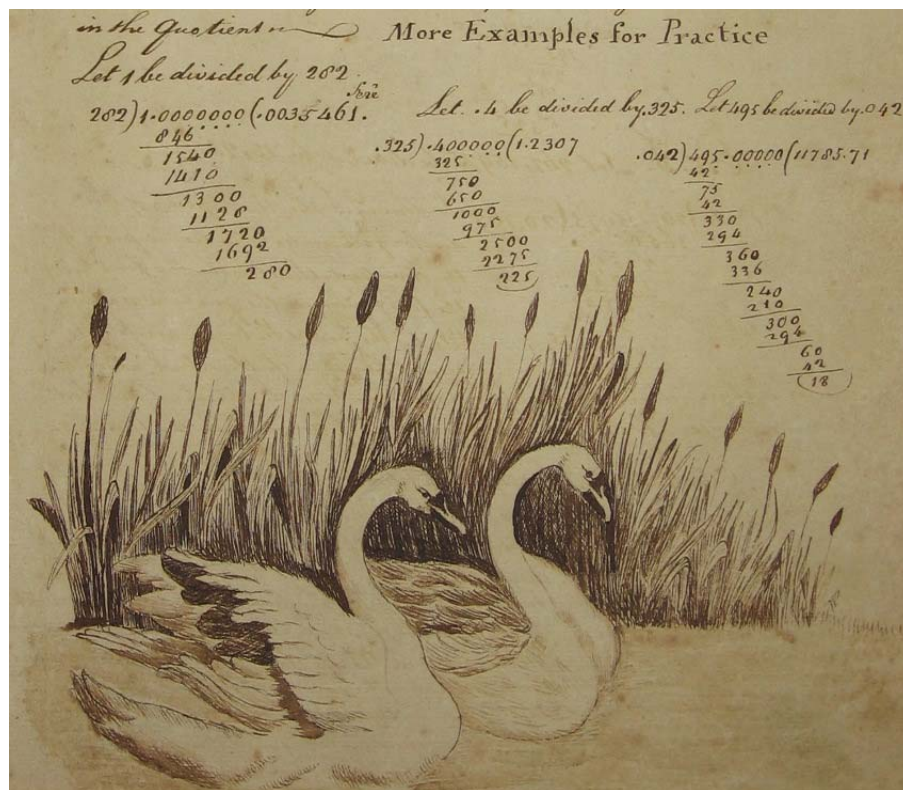 in the Quotient
More Examples for Practice
Let 1 be divided by 282.
282)1.0000000(.0035461.
846
1540
1410
1300
1128
1720
1692
280
Let .4 be divided by .325.
.325).400000(1.2307
325
750
650
1000
975
2500
2275
225
Let 495 be divided by .042
.042)495.00000(11785.71
42
75
42
330
294
360
336
240
210
300
294
60
42
18